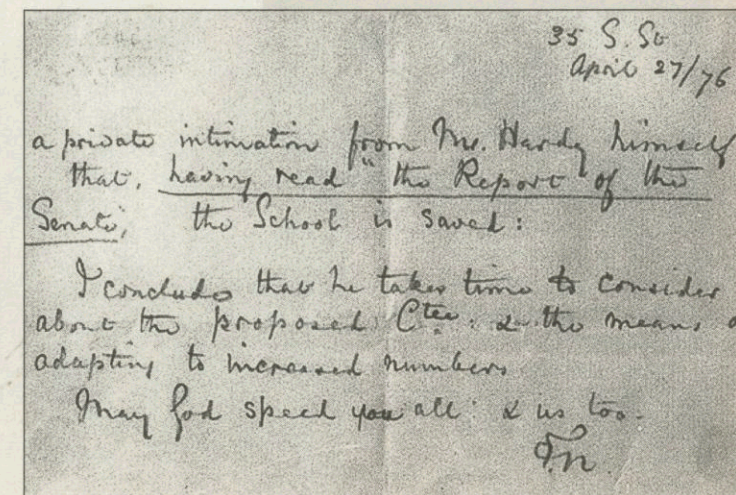 35 S. St
April 27/76
a private intimation from Mr. Hardy himself
that, having read "the Report of the
Senate, the School is saved:
I conclude that he takes time to consider
about the proposed Ctee: & the means
adapting to increased numbers
May God speed you all: & us too.
F.N.